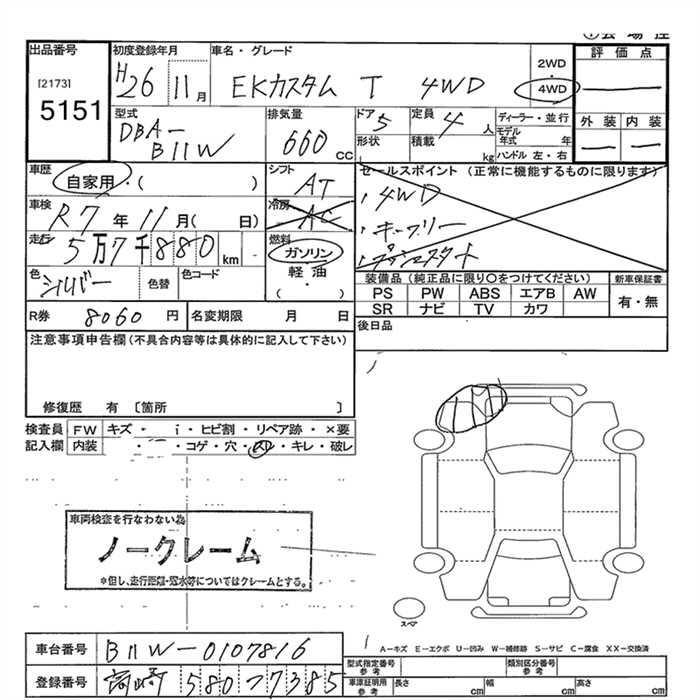 出品番号
[2173]
5151
初度登録年月
H26 11月
車名・グレード
EKカスタム T 4WD
2WD
・
4WD
評価点
外装 内装
型式
DBA-
B11W
排気量
660 CC
ドア 5
形状
定員 4 人
積載 kg
ディーラー・並行
モデル
年式 年
ハンドル 左・右
車歴
自家用・( )
シフト
AT
冷房
AC
セールスポイント (正常に機能するものに限ります)
・4WD
・キーフリー
・プッシュスタート
車検
R7年11月( 日)
走行
5万7千880km
燃料
ガソリン
軽油
・( )
色
シルバー
色替
色コード
装備品(純正品に限り○をつけてください)
PS PW ABS エアB AW
SR ナビ TV カワ
新車保証書
有・無
R券 8060 円
名変期限 月 日
後日品
注意事項申告欄(不具合内容等は具体的に記入して下さい)
修復歴 有 〔箇所 〕
検査員
記入欄
FW キズ・ i・ヒビ割・リペア跡・×要
内装 ・コゲ・穴・スレ・キレ・破レ
車両検査を行なわない為
ノークレーム
*但し、走行距離・冠水等についてはクレームとする。
スペア
A-キズ E-エクボ U-凹み W-補修跡 S-サビ C-腐食 XX-交換済
車台番号 B11W-0107816
登録番号 宮崎 580 ワ 7385
型式指定番号
参考
類別区分番号
参考
車庫証明用
参考
長さ cm 幅 cm 高さ cm